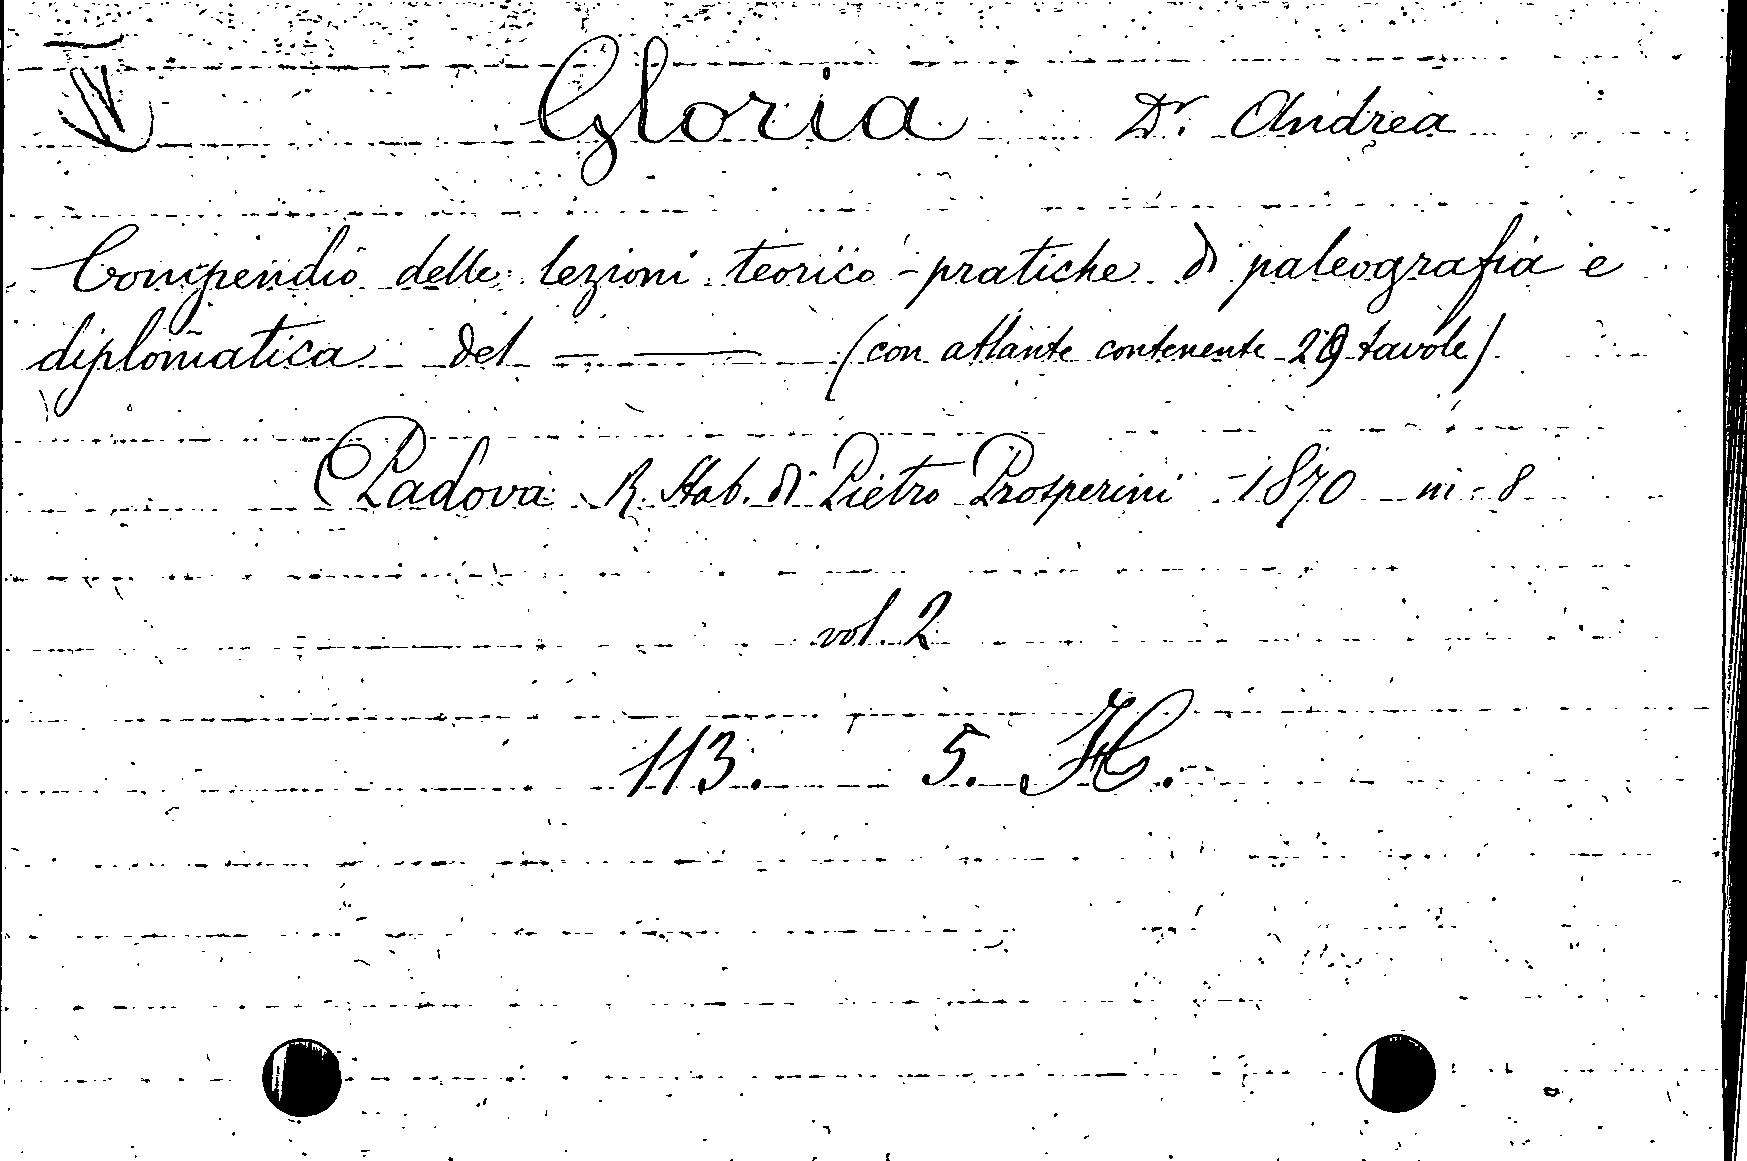 Gloria Dr. Andrea
Compendio delle lezioni teorico-pratiche di paleografia e
diplomatica del — —— (con atlante contenente 29 tavole)
Padova R. Stab. di Pietro Prosperini 1870 in-8
vol. 2
113. 5. H.